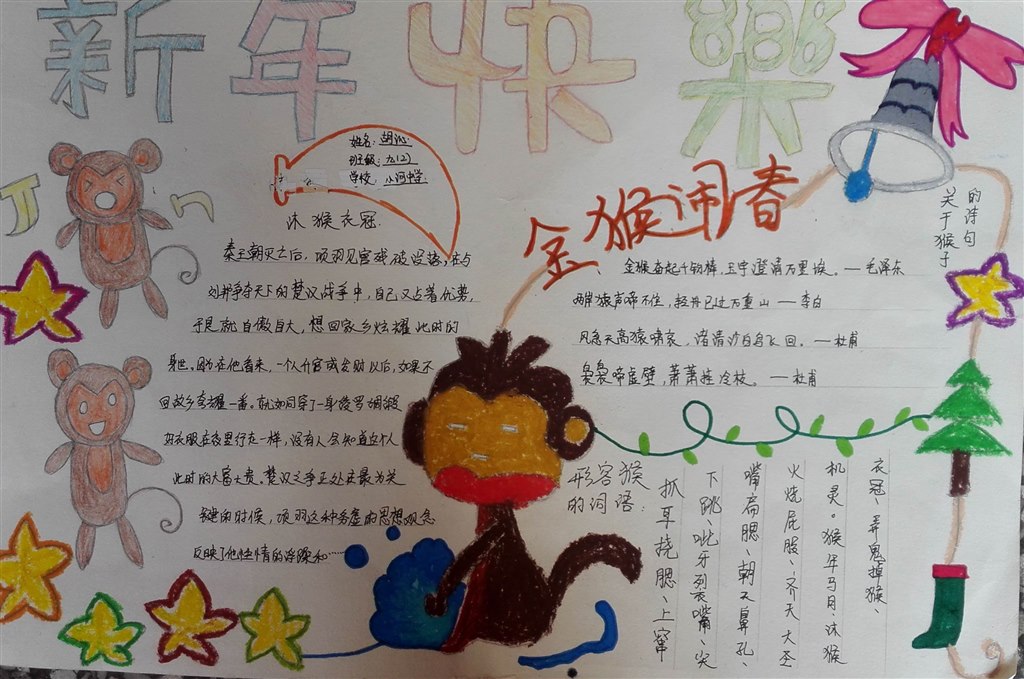 新年快樂
姓名：胡沁
班级：九(2)
学校：从河中学
金猴闹春
沐猴衣冠
秦王朝灭亡后，项羽见宫殿被毁坏，在与
刘邦争夺天下的楚汉战争中，自己又占着优势，
于是就自傲自大，想回家乡炫耀此时的
身世。因为在他看来，一个人升官或发财以后，如果不
回故乡夸耀一番，就如同穿了一身绫罗绸缎
的衣服在夜里行走一样，没有人会知道这个人
此时的大富大贵。楚汉之争正处在最为关
键的时候，项羽这种务虚的思想观念
反映了他性情的浮躁和……
关于猴子
的诗句
金猴奋起千钧棒，玉宇澄清万里埃。——毛泽东
两岸猿声啼不住，轻舟已过万重山——李白
风急天高猿啸哀，渚清沙白鸟飞回。——杜甫
袅袅啼虚壁，萧萧挂冷枝。——杜甫
形容猴
的词语：
抓耳挠腮、上窜
下跳、呲牙列嘴、尖
嘴扁腮、朝天鼻孔、
火烧屁股、齐天大圣
机灵。猴年马月、沐猴
衣冠、弄鬼掉猴、